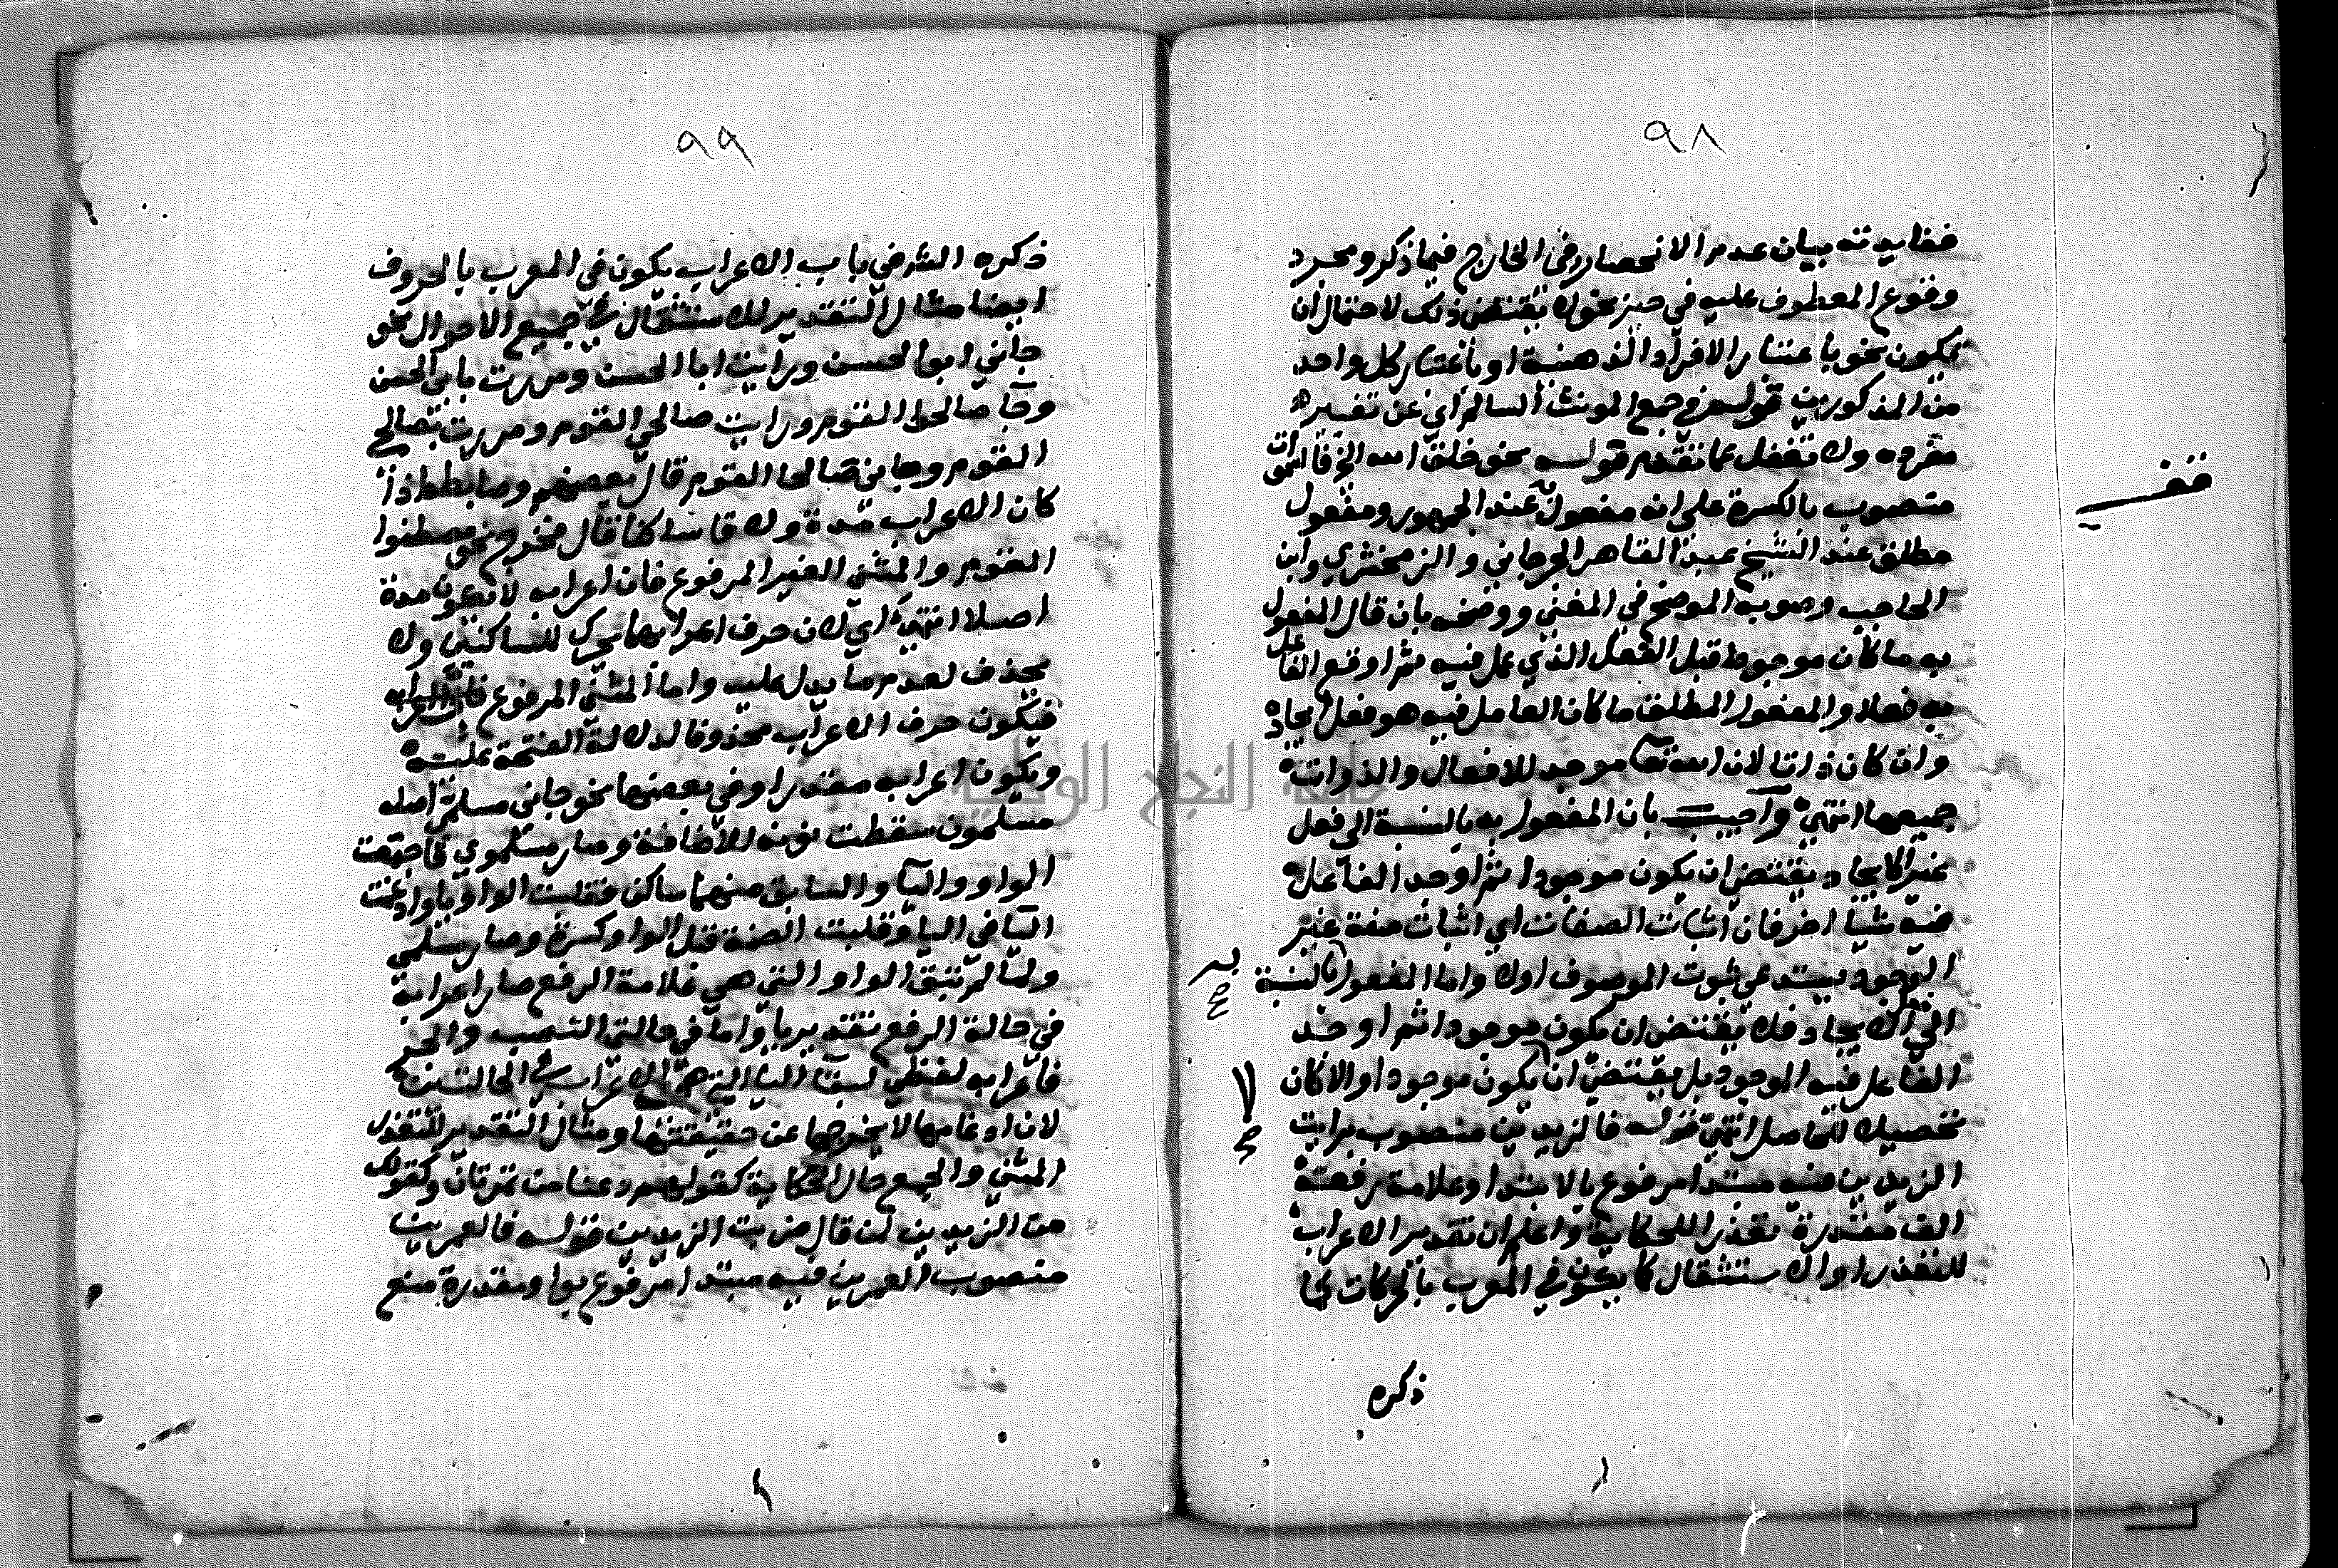 ٩٨
فغايته بيان عدم الانحصار في الخارج فيما ذكر ومجرد
وقوع المعطوف عليه في حيز نحو لا يقتضي ذلك لاحتمال ان
تكون نحو باعتبار الافراد الذهنية او باعتبار كل واحد
من المذكورين قوله في جمع المونث السالم اي عن تفسيره
مفرده ولا تغفل عما تقدم قوله نحو خلق الله الخ فالسموات
منصوب بالكسرة على انه مفعول به عند الجمهور ومفعول
مطلق عند الشيخ عبد القاهر الجرجاني والزمخشري وابن
الحاجب وصوبه الموضح في المغني ووضحه بان قال المفعول
به ما كان موجودا قبل الفعل الذي عمل فيه ثم اوقع الفاعل
به فعلا والمفعول المطلق ما كان العامل فيه هو فعل ايجاده
وان كان ذاتا لان الله تعا موجد للافعال والذوات
جميعها انتهى واجيب بان المفعول به بالنسبة الى فعل
غير الايجاد يقتضي ان يكون موجودا ثم اوجد الفاعل
فيه شيا اخر فان اثبات الصفات اي اثبات صفة غير
الوجود يستدعي ثبوت الموصوف اولا واما المفعول بالنسبة
الى الايجاد فلا يقتضي ان يكون موجودا ثم اوجد
الفاعل فيه الوجود بل يقتضي ان يكون موجودا والا كان
تحصيلا للحاصل انتهى قوله فالزيدين منصوب برايت
الزيدين فيه مبتدا مرفوع بالابتدا وعلامة رفعه
الف مقدرة تعذرا للحكاية واعلم ان تقدير الاعراب
للتعذر او الاستثقال كما يكون في المعرب بالحركات كما
ذكره
به
صح
لا
صح
٩٩
ذكره الشرضي باب الاعراب يكون في المعرب بالحروف
ايضا مثال التقدير للاستثقال في جميع الاحوال نحو
جاني ابو الحسن ورايت ابا الحسن ومررت بابي الحسن
وجا صالحوا القوم ورايت صالحي القوم ومررت بصالحي
القوم وجاني صالحا القوم قال بعضهم وضابطه اذا
كان الاعراب مدة ولاقا ساكنا قال فخرج نحو مصطفوا
القوم والمثنى الغير المرفوع فان اعرابه لا يكون مدة
اصلا انتهى اي لان حرف اعرابها يحرك للساكنين ولا
يحذف لعدم ما يدل عليه واما المثنى المرفوع
فيكون حرف الاعراب محذوفا لدلالة الفتحة عليه
ويكون اعرابه مقدرا وفي بعضها نحو جاني مسلمي اصله
مسلمون سقطت نونه للاضافة وصار مسلموي فاجتمعت
الواو واليا والسابق منهما ساكن فقلبت الواو يا وادغمت
اليا في اليا وقلبت الضمة قبل الواو كسرة وصار مسلمي
ولما لم تبق الواو التي هي علامة الرفع صار اعرابه
في حالة الرفع تقديريا واما في حالتي النصب والجر
فاعرابه لفظي لبقا اليا التي هي الاعراب في الحالتين
لان ادغامها لا يخرجها عن حقيقتها ومثال التقدير للتعذر
المثنى والجمع حال الحكاية كقولهم دعنا من تمرتان وكقولك
من الزيدين لمن قال ضربت الزيدين قوله فالعمرين
منصوب العمرين فيه مبتدا مرفوع بواو مقدرة منع